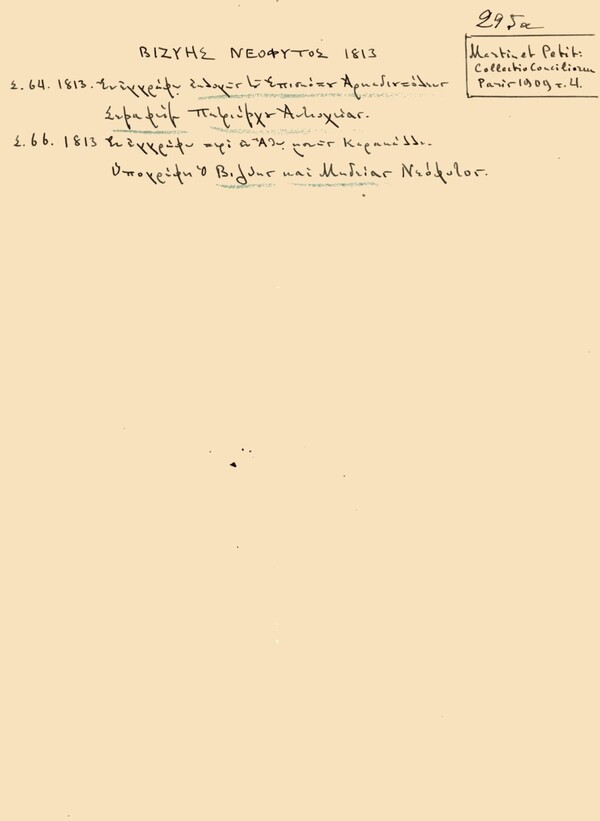 295α
Martin et Petit:
Collectio Conciliorum
Paris 1909 τ. 4.
ΒΙΖΥΗΣ ΝΕΟΦΥΤΟΣ 1813
Σ. 64. 1813. Ἐν ἐγγράφῳ ἐκλογῆς τοῦ Ἐπισκόπου Ἀρκαδιουπόλεως
Σεραφείμ Πατριάρχου Ἀντιοχείας.
Σ. 66. 1813 Ἐν ἐγγράφῳ περὶ μονῆς Καρακάλλου.
Ὑπογράφει ὁ Βιζύης καὶ Μηδείας Νεόφυτος.